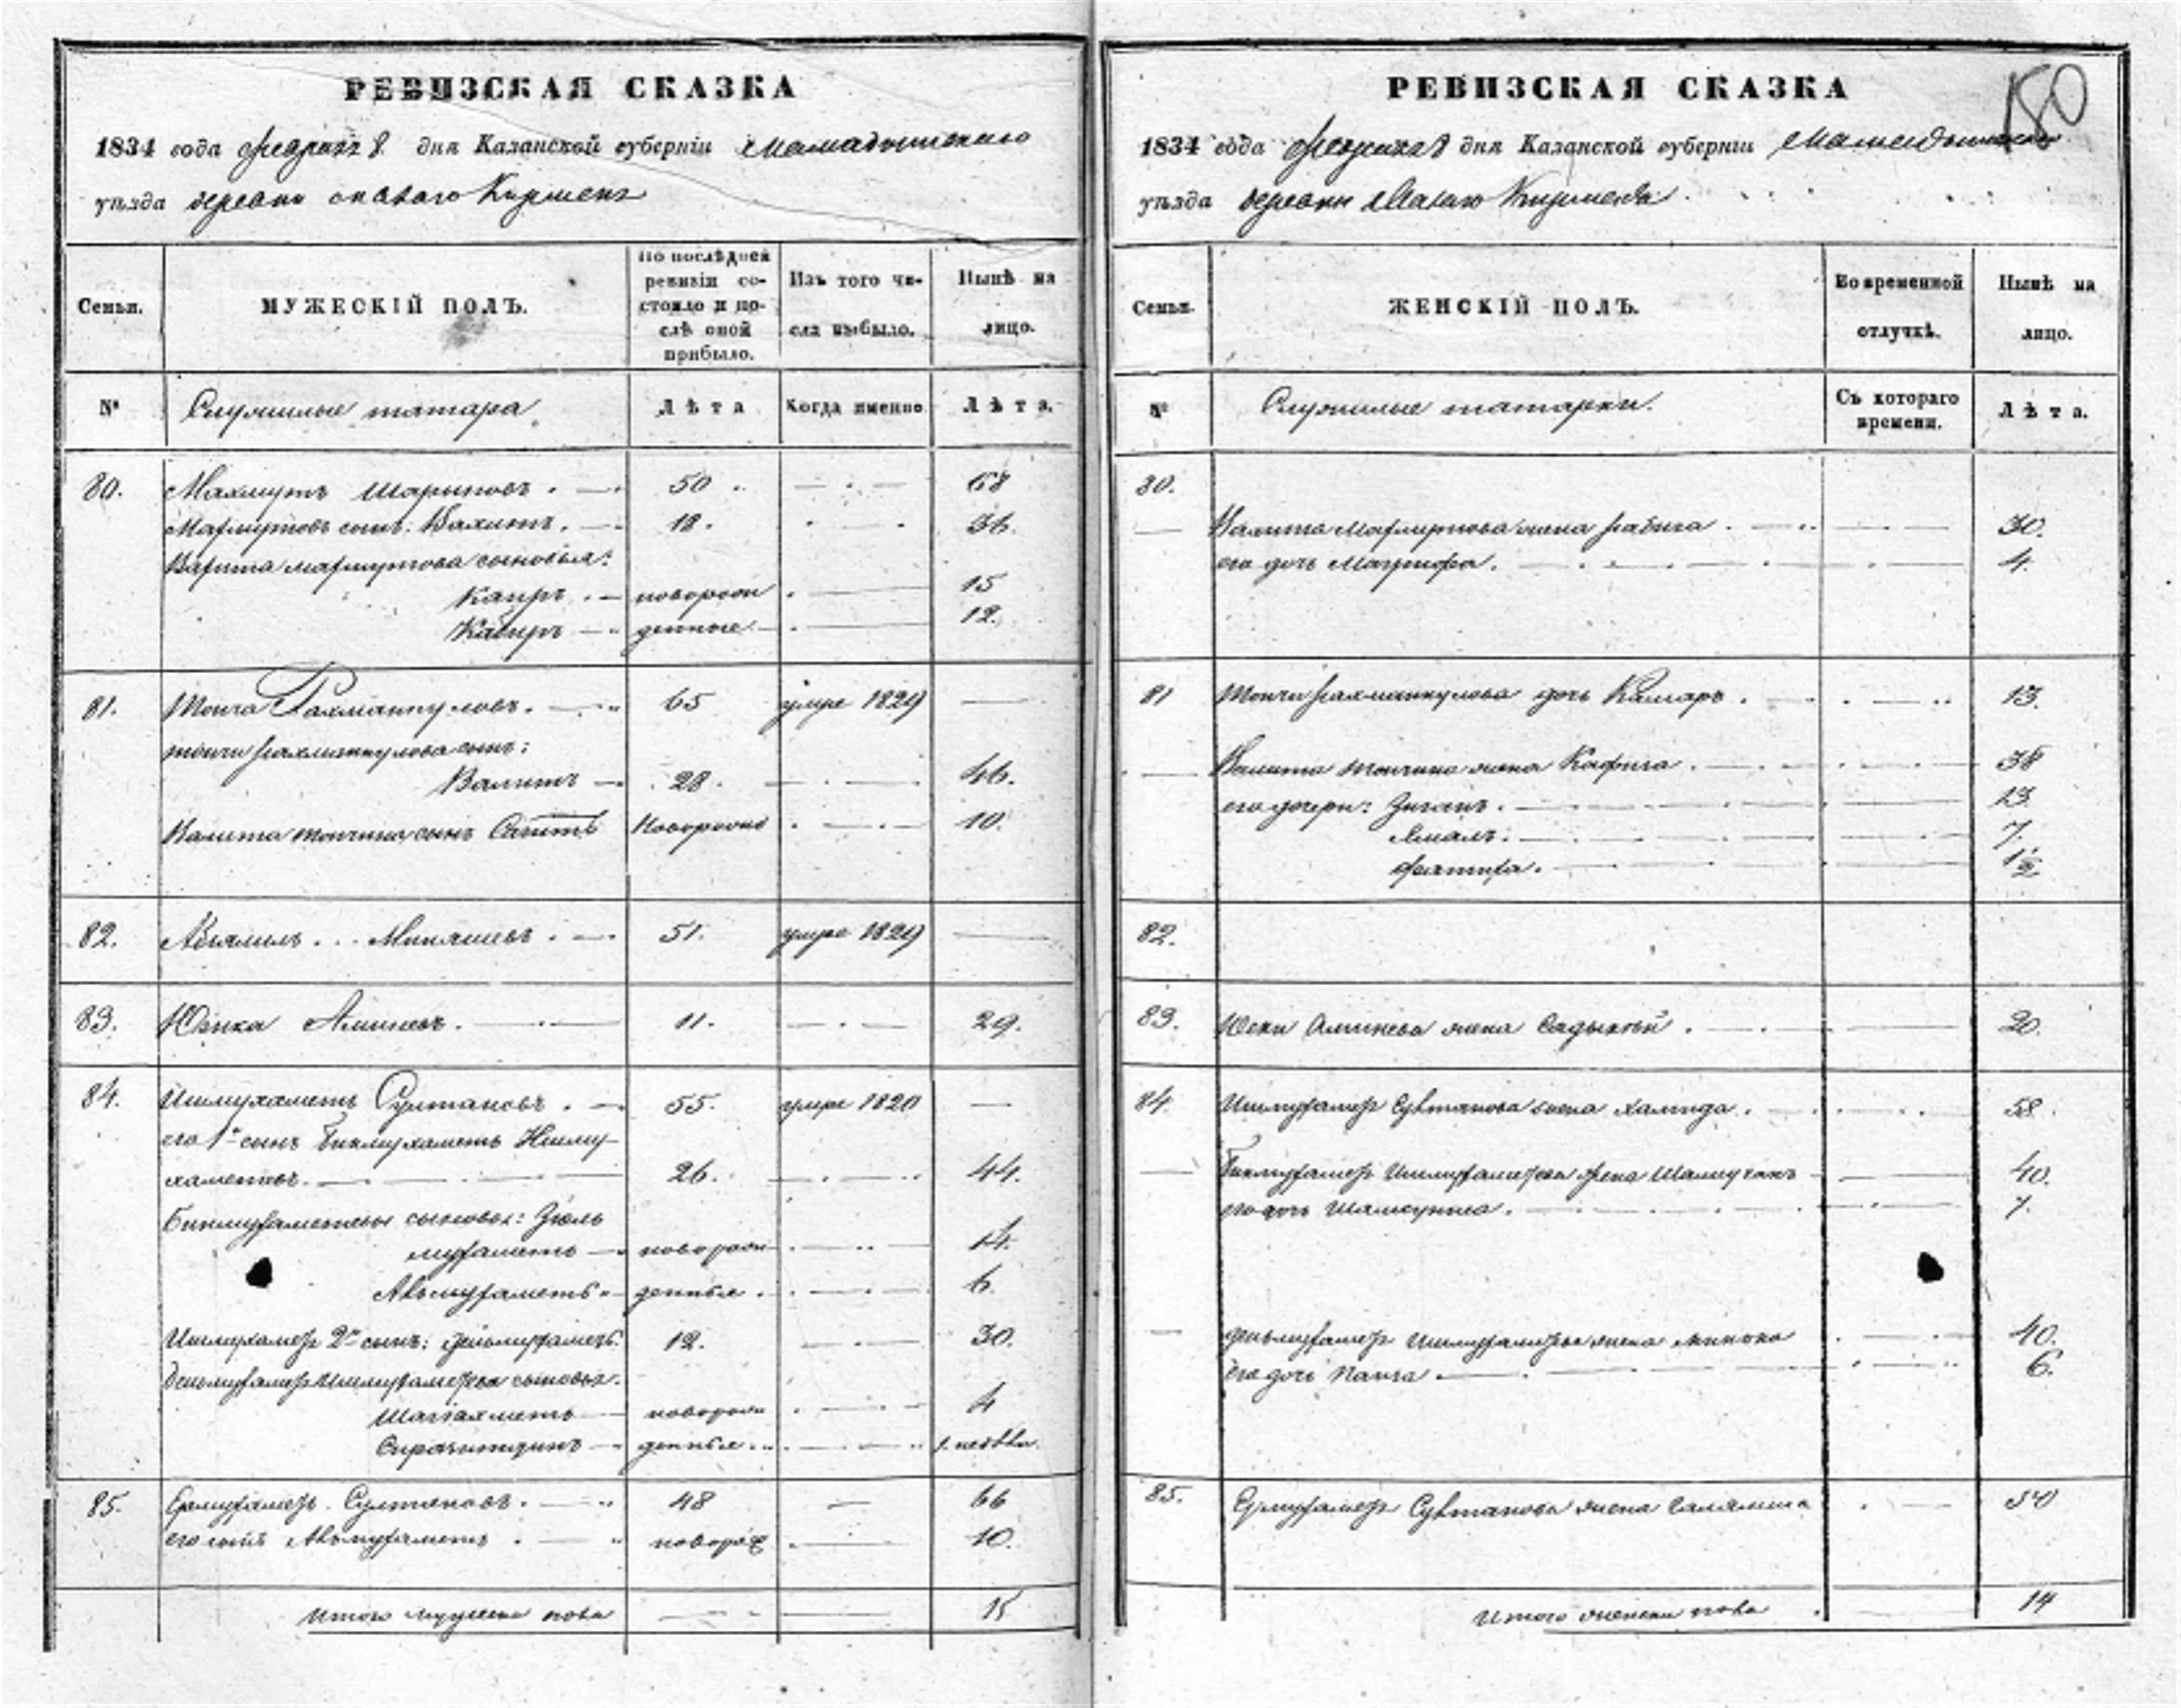 РЕВИЗСКАЯ СКАЗКА
1834 года февраля 8 дня Казанской губерніи Мамадышскаго
уѣзда деревни Малаго Кирменя
Семьи.
МУЖЕСКІЙ ПОЛЪ.
По послѣдней ревизіи состояло и послѣ оной прибыло.
Изъ того числа выбыло.
Нынѣ на лицо.
№
Служилые татара
Лѣта
Когда именно
Лѣта.
80. Махмутъ Шариповъ. 50 68
Махмутовъ сынъ: Вахитъ. 18. 36.
Вахита Махмутова сыновья:
Каиръ новорож 15
Кабиръ денные 12.
81. Монча Рахманкуловъ. 65 умре 1829
Мончи Рахманкулова сынъ:
Валитъ 28. 46.
Валита Мончина сынъ Сагитъ Новорожд 10.
82. Абзялилъ Миняшевъ. 51. умре 1829
83. Юзика Аминевъ. 11. 29.
84. Ишмухаметъ Султановъ. 55. умре 1820
его 1й сынъ Бикмухаметъ Ишму-
хаметевъ. 26. 44.
Бикмухаметевы сыновья: Зюль
мухаметъ новорож 14.
Альмухаметъ денные. 6.
Ишмухамет 2й сынъ: 12. 30.
сыновья.
Шагіахметъ новорож 4
Сиразитдинъ денные 1. недѣли
85. Ермухамет. Султановъ. 48 66
его сынъ Альмухаметъ. новорож 10.
Итого мужеска пола 15
РЕВИЗСКАЯ СКАЗКА
150
1834 года февраля 8 дня Казанской губерніи Мамадышскаго
уѣзда деревни Малаго Кирменя.
Семьи.
ЖЕНСКІЙ ПОЛЪ.
Во временной отлучкѣ.
Нынѣ на лицо.
№
Служилые татарки.
Съ котораго времени.
Лѣта.
80.
Вахита Махмутова жена Рабига. 30.
его дочь Магрифа. 4.
81 Мончи Рахманкулова дочь Камаръ. 13.
Валита Мончина жена Кафига. 38
его дочери: Зиганъ. 13
Ямалъ. 7.
Фатиха. 1½
82.
83. Юзеки Аминева жена Садыковй. 20.
84. Ишмухамет Султанова жена Халитда. 58.
Бикмухамет Ишмухаметева жена 40.
его дочь Шамсуниса. 7.
Ишмухаметева жена 40.
его дочь 6.
85. Ермухамет Султанова жена Галямиса 50
Итого женска пола 14